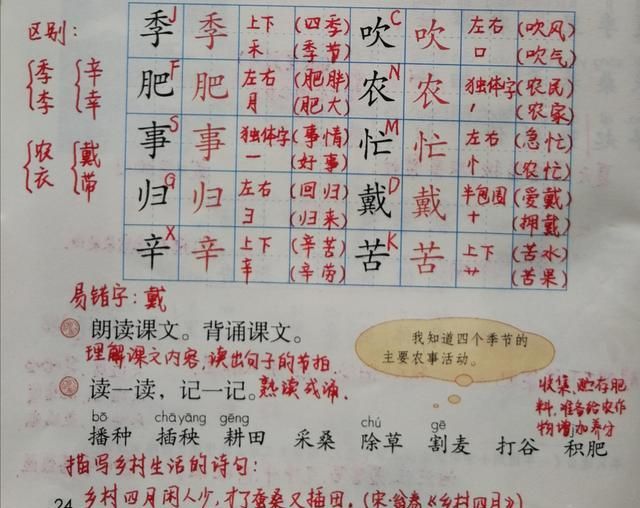 区别:
季 李 辛 幸
农 衣 戴 带
季 J 季 上下 禾 (四季) (季节) 吹 C 吹 左右 口 (吹风) (吹气)
肥 F 肥 左右 月 (肥胖) (肥大) 农 N 农 独体字 丿 (农民) (农家)
事 S 事 独体字 一 (事情) (好事) 忙 M 忙 左右 忄 (急忙) (农忙)
归 G 归 左右 彐 (回归) (归来) 戴 D 戴 半包围 十 (爱戴) (拥戴)
辛 X 辛 上下 辛 (辛苦) (辛劳) 苦 K 苦 上下 艹 (苦水) (苦果)
易错字: 戴
朗读课文。背诵课文。
理解课文内容,读出句子的节拍
我知道四个季节的
主要农事活动。
读一读,记一记。熟读成诵.
收集、贮存肥
料,准备给农作
物增加养分
bō chāyāng gēng chú gē
播种 插秧 耕田 采桑 除草 割麦 打谷 积肥
描写乡村生活的诗句:
24 乡村四月闲人少,才了蚕桑又插田。(宋·翁卷《乡村四月》)